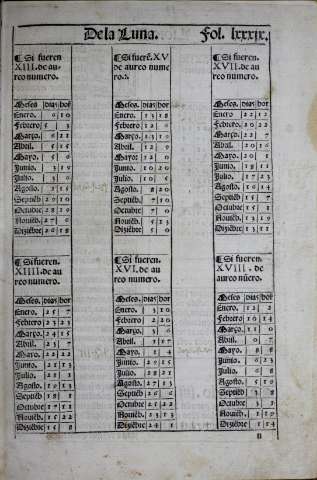 De la Luna. Fol. lxxxix.
¶ Si fueren
XIII. de au
reo numero.
Meses dias hor
Enero. 6 10
Febrero 5 3
Março. 6 21
Abril. 5 15
Mayo. 5 6
Junio. 3 19
Julio. 3 6
Agosto.
Septiẽb 29 10
Octubre 28
Nouiẽb. 27 6
Diziẽbre 26 18
¶ Si fuerẽ. XV
de aureo nume
ro.
Meses dias hor
Enero. 13 18
Febrero 12
Março. 13 19
Abril. 12 9
Mayo. 12 0
Junio. 10
Julio. 10 5
Agosto 8 20
Septiẽb 7 10
Octubre 7 0
Nouiẽb 5 13
Diziẽbre 5 0
¶ Si fueren
XVII. de au
reo numero.
Meses dias hor
Enero. 22 12
Febrero. 20 22
Março. 22 7
Abril. 20 16
Mayo. 20 1
Junio. 18 11
Julio. 17 23
Agosto. 16 14
Septiẽb 15 7
Octubre 15 1
Nouiẽb 13 19
Diziẽbre 13 11
¶ Si fueren.
XIIII. de au
reo numero.
Meses. dias hor
Enero. 25 7
Febrero 23 23
Março. 24 15
Abril. 23 7
Mayo. 22 22
Junio. 21 13
Julio. 21 2
Agosto 19 13
Septiẽb 18 1
Octubre 17 11
Nouiẽb 15 22
Diziẽbr 15 8
¶ Si fueren.
XVI. de au
reo numero.
Meses. dias hor
Enero. 3 10
Febrero 2 20
Março. 3 6
Abril. 1 17
Mayo. 1 4
Junio.
Julio. 28 21
Agosto 27 13
Septiẽb 26 6
Octubre 25 22
Nouiẽb 24 13
Diziẽbre 24 1
¶ Si fueren
XVIII. de
aureo nũero.
Meses dias hor
Enero. 12 2
Febrero 10 14
Março. 11 0
Abril. 9 7
Mayo. 8
Junio. 6
Julio. 6 8
Agosto. 5 19
Septiẽb 3 8
Octubre 3 1
Nouiẽb 1 19
Diziẽbre 1 14